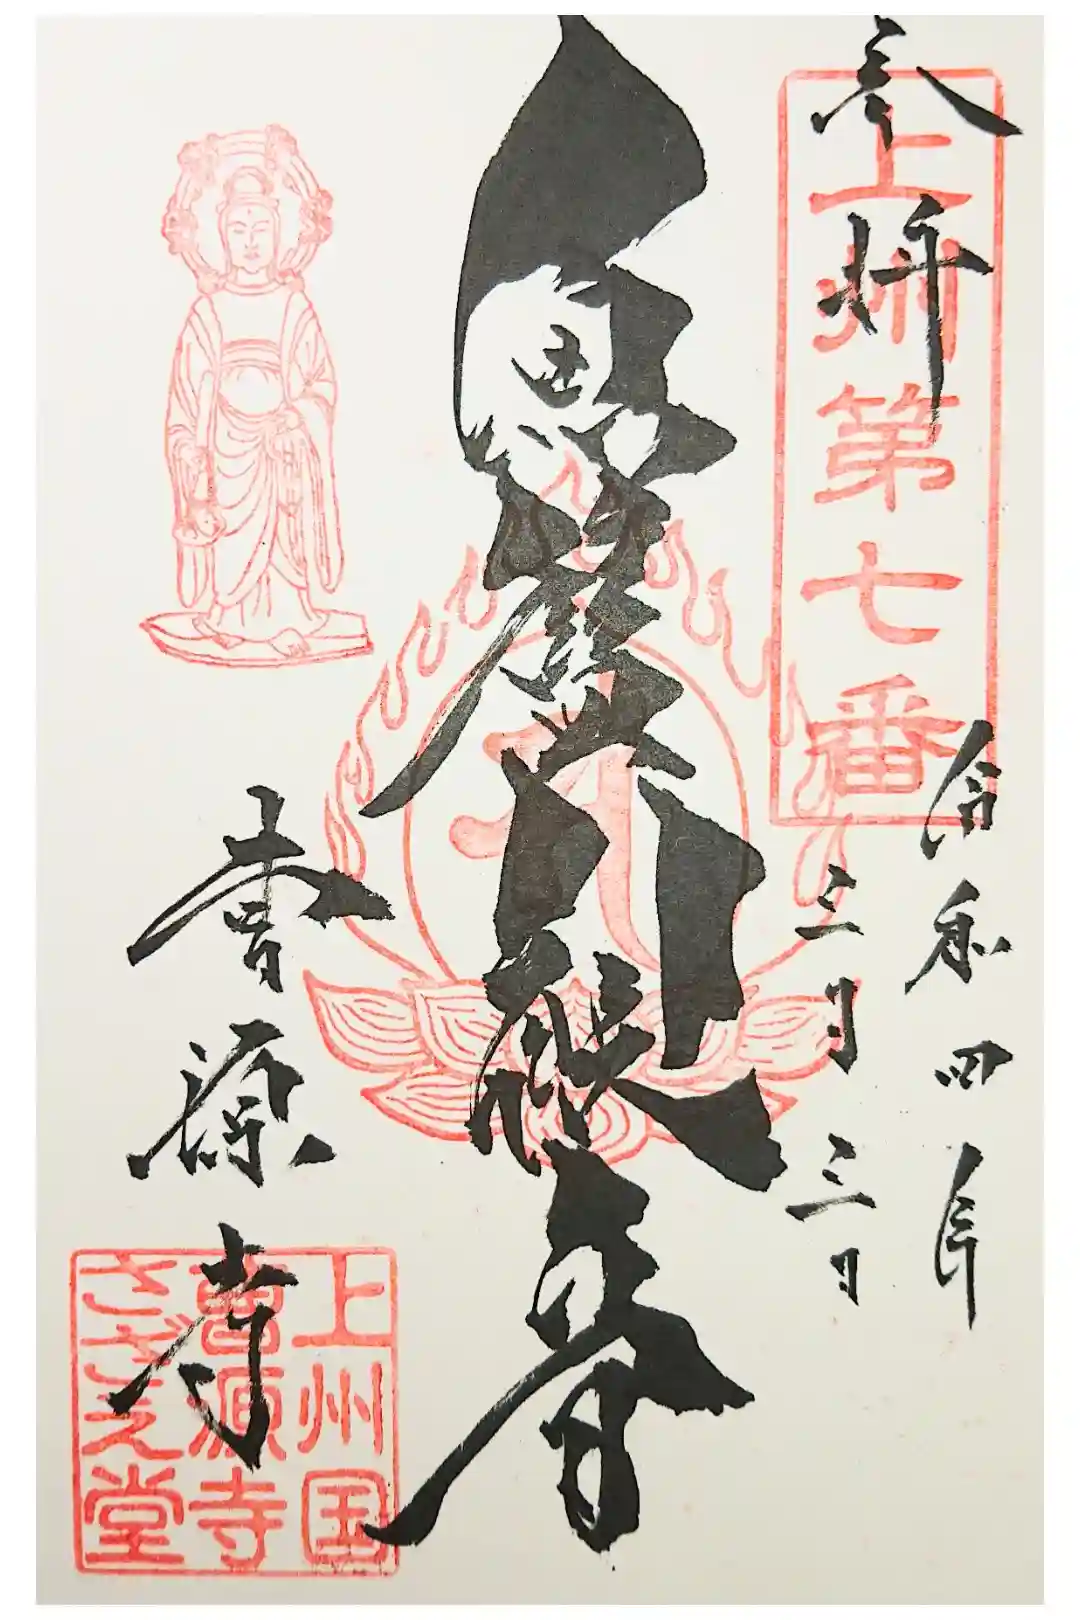 奉拝
上州第七番
令和四年
三月三日
曹源寺
上州国
曹源寺
さざえ堂